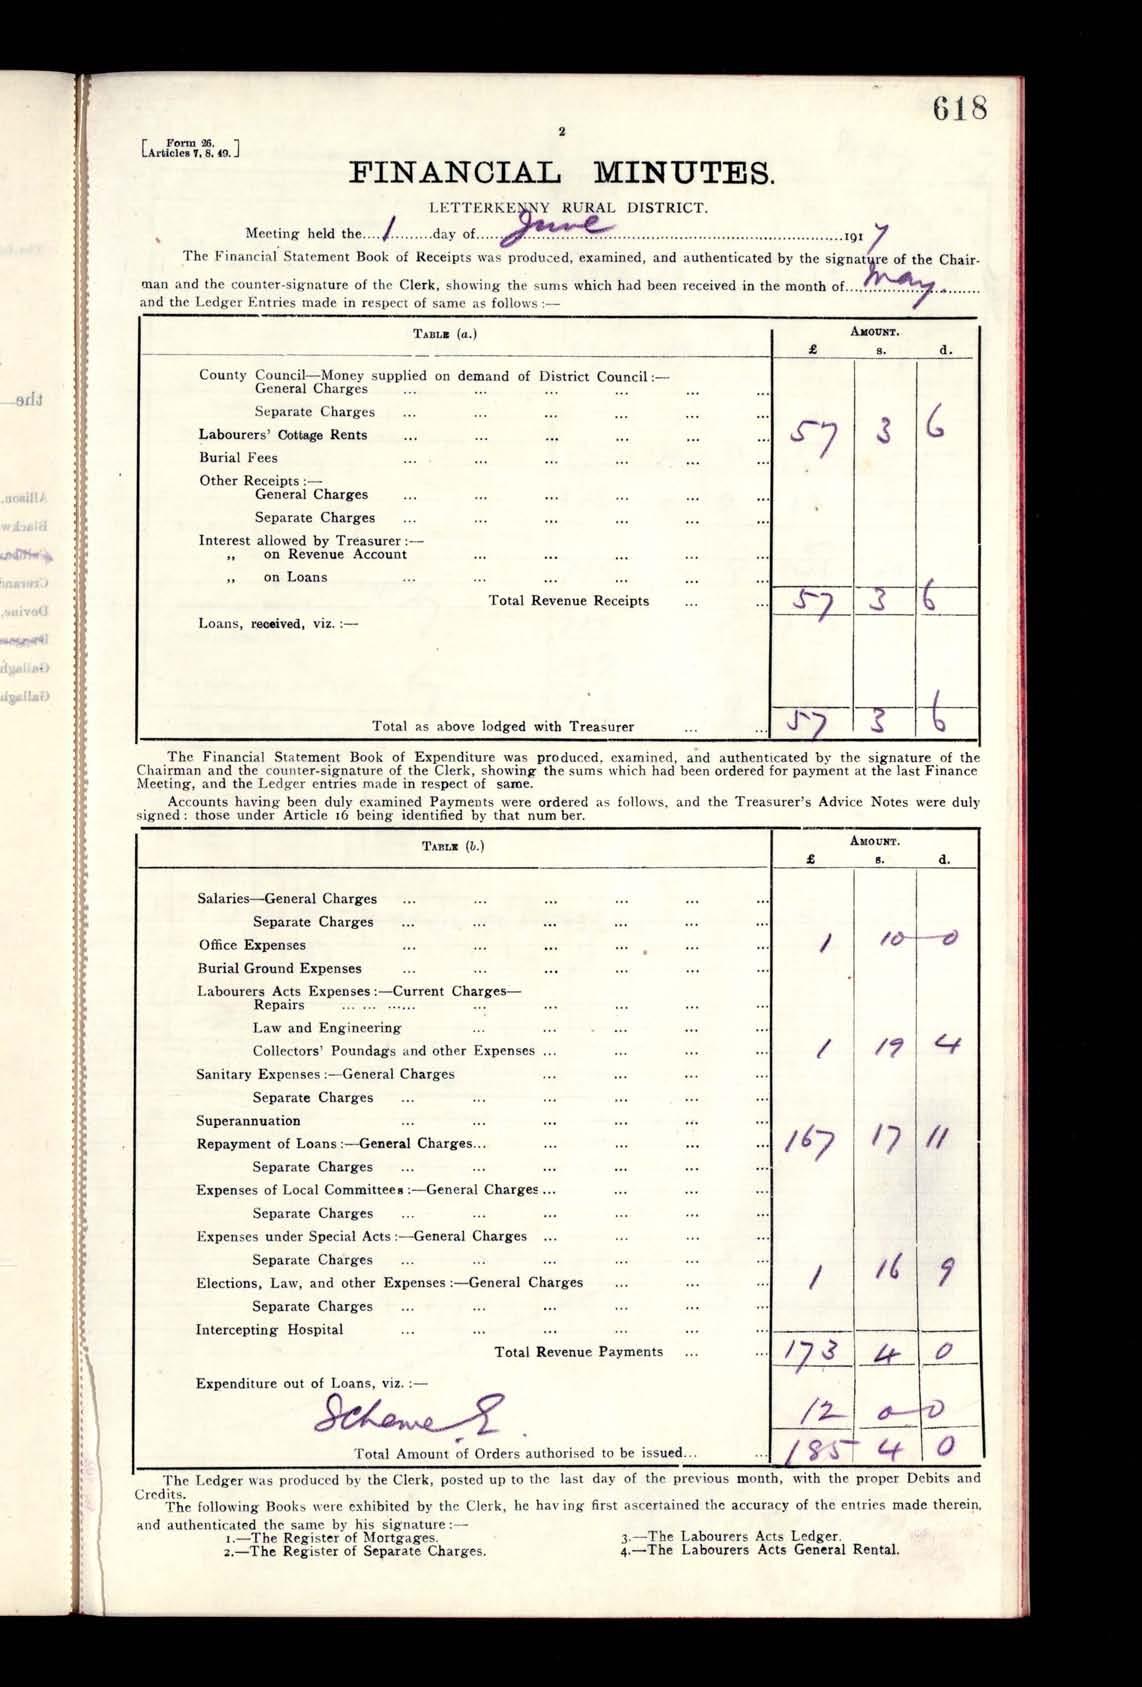 618
2
[Form 26.
Articles 7, 8, 49.]
FINANCIAL MINUTES.
LETTERKENNY RURAL DISTRICT.
Meeting held the....1.........day of......June......191 7
The Financial Statement Book of Receipts was produced, examined, and authenticated by the signature of the Chair-
man and the counter-signature of the Clerk, showing the sums which had been received in the month of...May...
and the Ledger Entries made in respect of same as follows :—
TABLE (a.) AMOUNT.
£ s. d.
County Council—Money supplied on demand of District Council :—
General Charges ... ... ... ... ... ...
Separate Charges ... ... ... ... ... ...
Labourers' Cottage Rents ... ... ... ... ... ... 57 3 6
Burial Fees ... ... ... ... ... ...
Other Receipts :—
General Charges ... ... ... ... ... ...
Separate Charges ... ... ... ... ... ...
Interest allowed by Treasurer :—
„ on Revenue Account ... ... ... ... ...
„ on Loans ... ... ... ... ... ...
Total Revenue Receipts ... ... 57 3 6
Loans, received, viz. :—
Total as above lodged with Treasurer ... ... 57 3 6
The Financial Statement Book of Expenditure was produced, examined, and authenticated by the signature of the
Chairman and the counter-signature of the Clerk, showing the sums which had been ordered for payment at the last Finance
Meeting, and the Ledger entries made in respect of same.
Accounts having been duly examined Payments were ordered as follows, and the Treasurer's Advice Notes were duly
signed : those under Article 16 being identified by that num ber.
TABLE (b.) AMOUNT.
£ s. d.
Salaries—General Charges ... ... ... ... ... ...
Separate Charges ... ... ... ... ... ...
Office Expenses ... ... ... ... ... ... 1 10 0
Burial Ground Expenses ... ... ... ... ... ...
Labourers Acts Expenses :—Current Charges—
Repairs ... ... ...... ... ... ... ... ...
Law and Engineering ... ... ... ... ...
Collectors' Poundags and other Expenses ... ... ... ... 1 19 4
Sanitary Expenses :—General Charges ... ... ... ...
Separate Charges ... ... ... ... ... ...
Superannuation ... ... ... ... ... ...
Repayment of Loans :—General Charges... ... ... ... ... 167 17 11
Separate Charges ... ... ... ... ... ...
Expenses of Local Committees :—General Charges ... ... ... ...
Separate Charges ... ... ... ... ... ...
Expenses under Special Acts :—General Charges ... ... ... ...
Separate Charges ... ... ... ... ... ...
Elections, Law, and other Expenses :—General Charges ... ... ... 1 16 9
Separate Charges ... ... ... ... ... ...
Intercepting Hospital ... ... ... ... ... ...
Total Revenue Payments ... ... 173 4 0
Expenditure out of Loans, viz. :—
Scheme E 12 0 0
Total Amount of Orders authorised to be issued... ... 185 4 0
The Ledger was produced by the Clerk, posted up to the last day of the previous month, with the proper Debits and
Credits.
The following Books were exhibited by the Clerk, he having first ascertained the accuracy of the entries made therein,
and authenticated the same by his signature :—
1.—The Register of Mortgages. 3.—The Labourers Acts Ledger.
2.—The Register of Separate Charges. 4.—The Labourers Acts General Rental.